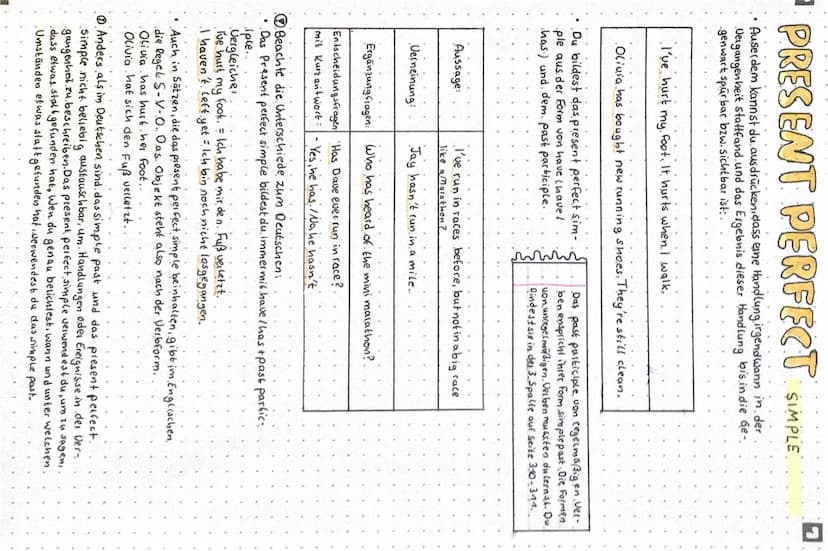 PRESENT PERFECT SIMPLE
• Außerdem kannst du ausdrücken, dass eine Handlung irgendwann in der
Vergangenheit stattfand und das Ergebnis dieser Handlung bis in die Ge-
genwart spürbar bzw. sichtbar ist:
I've hurt my foot. It hurts when I walk.
Olivia has bought new running shoes. They're still clean.
• Du bildest das present perfect sim-
ple aus der Form von have (have/
has) und dem past participle.
Das past participle von regelmäßigen Ver-
ben entspricht ihrer Form simple past. Die Formen
von unregelmäßigen Verben mussten du lernst. Du
findest sie in der 3. Spalte auf Seite 310-311.
Aussage: I've run in races before, but not in a big race
like a Marathon?
Verneinung: Jay hasn't run in a mile.
Ergänzungsfragen: Who has heard of the mini marathon?
Entscheidungsfragen Has Dave ever run in race?
mit Kurzantwort: - Yes, he has. // No, he hasn't
Beachte die Unterschiede zum Deutschen:
• Das Present perfect simple bildest du immer mit have / has + past partic-
iple.
Vergleiche:
I've hurt my foot. = Ich habe mir den Fuß verletzt.
I haven't left yet = Ich bin noch nicht losgegangen.
• Auch in Sätzen, die das present perfect simple beinhalten, gibt im Englischen
die Regel S-V-O. Das Objekt steht also nach der Verbform.
Olivia has hurt her foot.
Olivia hat sich den Fuß verletzt.
Anders als im Deutschen sind das simple past und das present perfect
simple nicht beliebig austauschbar, um Handlungen oder Ereignisse in der Ver-
gangenheit zu beschreiben. Das present perfect simple verwendest du, um zu sagen,
dass etwas stattgefunden hat. Wenn du genau berichtest, wann und unter welchen
Umständen etwas stattgefunden hat, verwendest du das simple past.